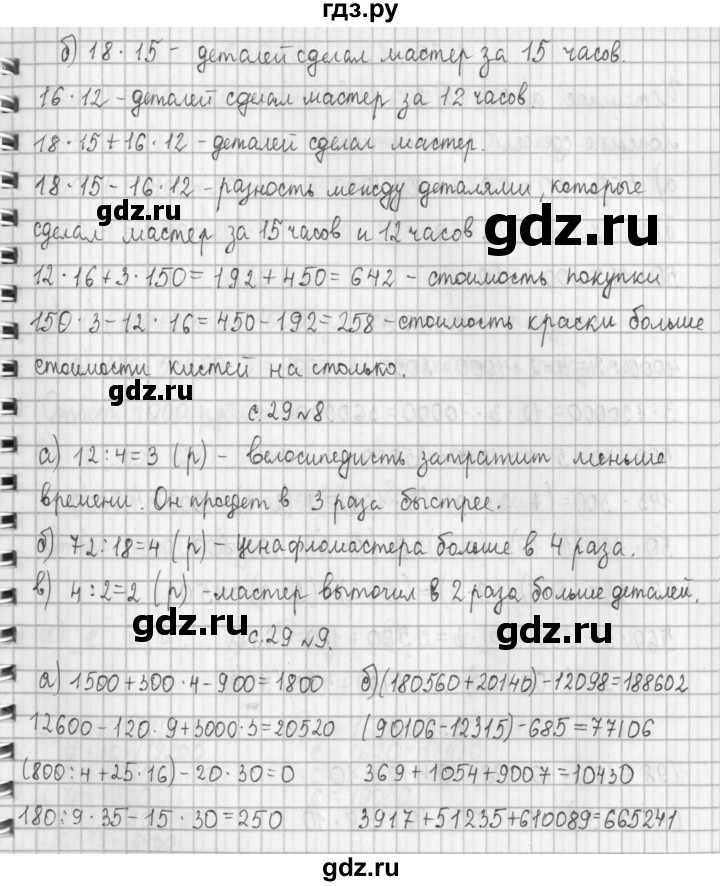 гдз.ру
б) 18 · 15 - деталей сделал мастер за 15 часов.
16 · 12 - деталей сделал мастер за 12 часов.
18 · 15 + 16 · 12 - деталей сделал мастер.
18 · 15 - 16 · 12 - разность между деталями, которые
gdz.ru
gdz.ru
сделал мастер за 15 часов и 12 часов
12 · 16 + 3 · 150 = 192 + 450 = 642 - стоимость покупки
150 · 3 - 12 · 16 = 450 - 192 = 258 - стоимость краски больше
стоимости кистей на столько.
gdz.ru
с. 29 №8.
а) 12 : 4 = 3 (р) - велосипедисть затратит меньше
времени. Он проедет в 3 раза быстрее.
б) 72 : 18 = 4 (р) - цена фломастера больше в 4 раза.
в) 4 : 2 = 2 (р) - мастер выточил в 2 раза больше деталей.
gdz.ru
с. 29 №9.
gdz.ru
а) 1500 + 300 · 4 - 900 = 1800 б) (180560 + 20140) - 12098 = 188602
12600 - 120 · 9 + 3000 · 3 = 20520 (90106 - 12315) - 685 = 77106
(800 : 4 + 25 · 16) - 20 · 30 = 0 369 + 1054 + 9007 = 10430
180 : 9 · 35 - 15 · 30 = 250 3917 + 51235 + 610089 = 665241
gdz.ru